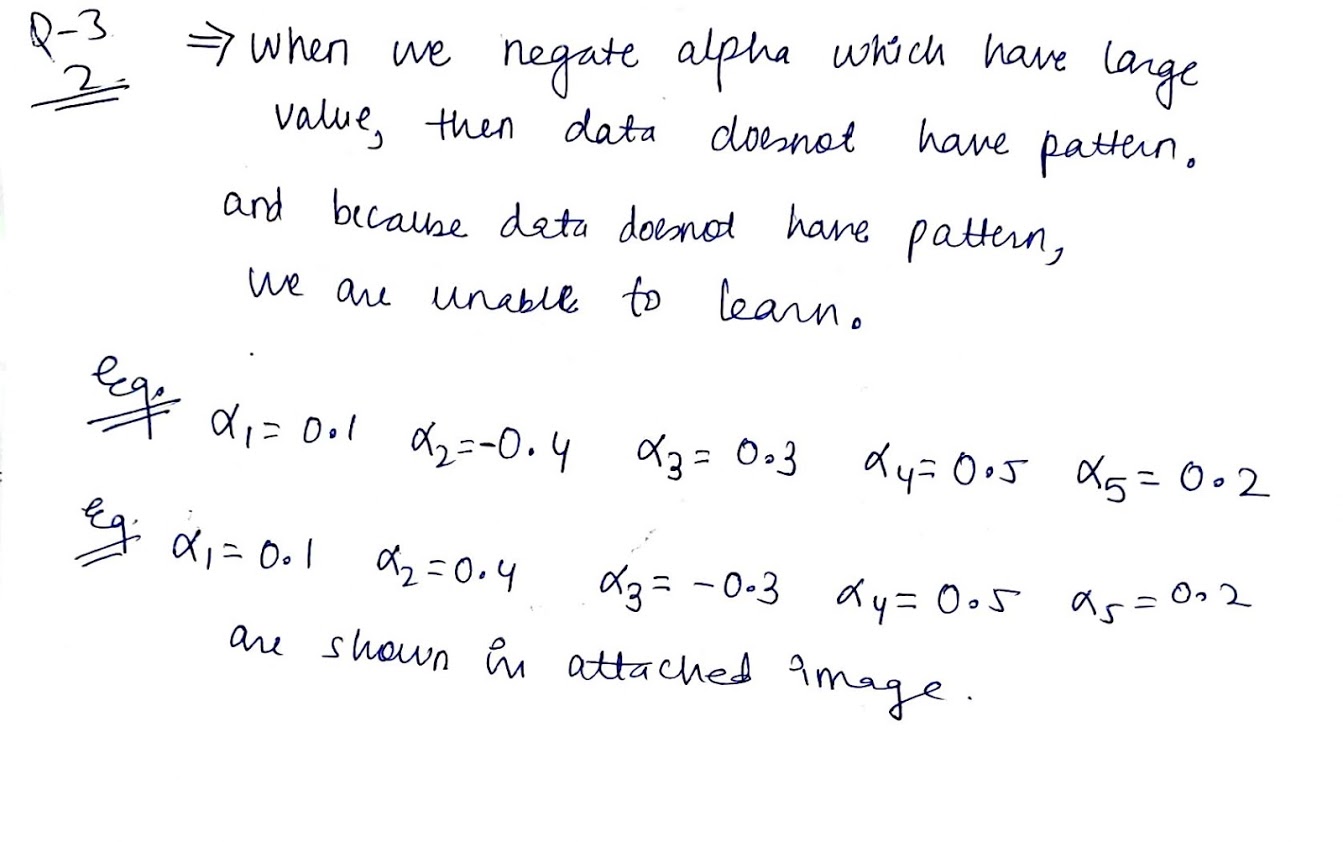 Q-3
2
⇒ When we negate alpha which have large
value, then data doesnot have pattern.
and because data doesnot have pattern,
we are unable to learn.
Eg. α₁= 0.1 α₂=-0.4 α₃= 0.3 α₄= 0.5 α₅= 0.2
Eg. α₁= 0.1 α₂=0.4 α₃= -0.3 α₄= 0.5 α₅= 0.2
are shown in attached image.